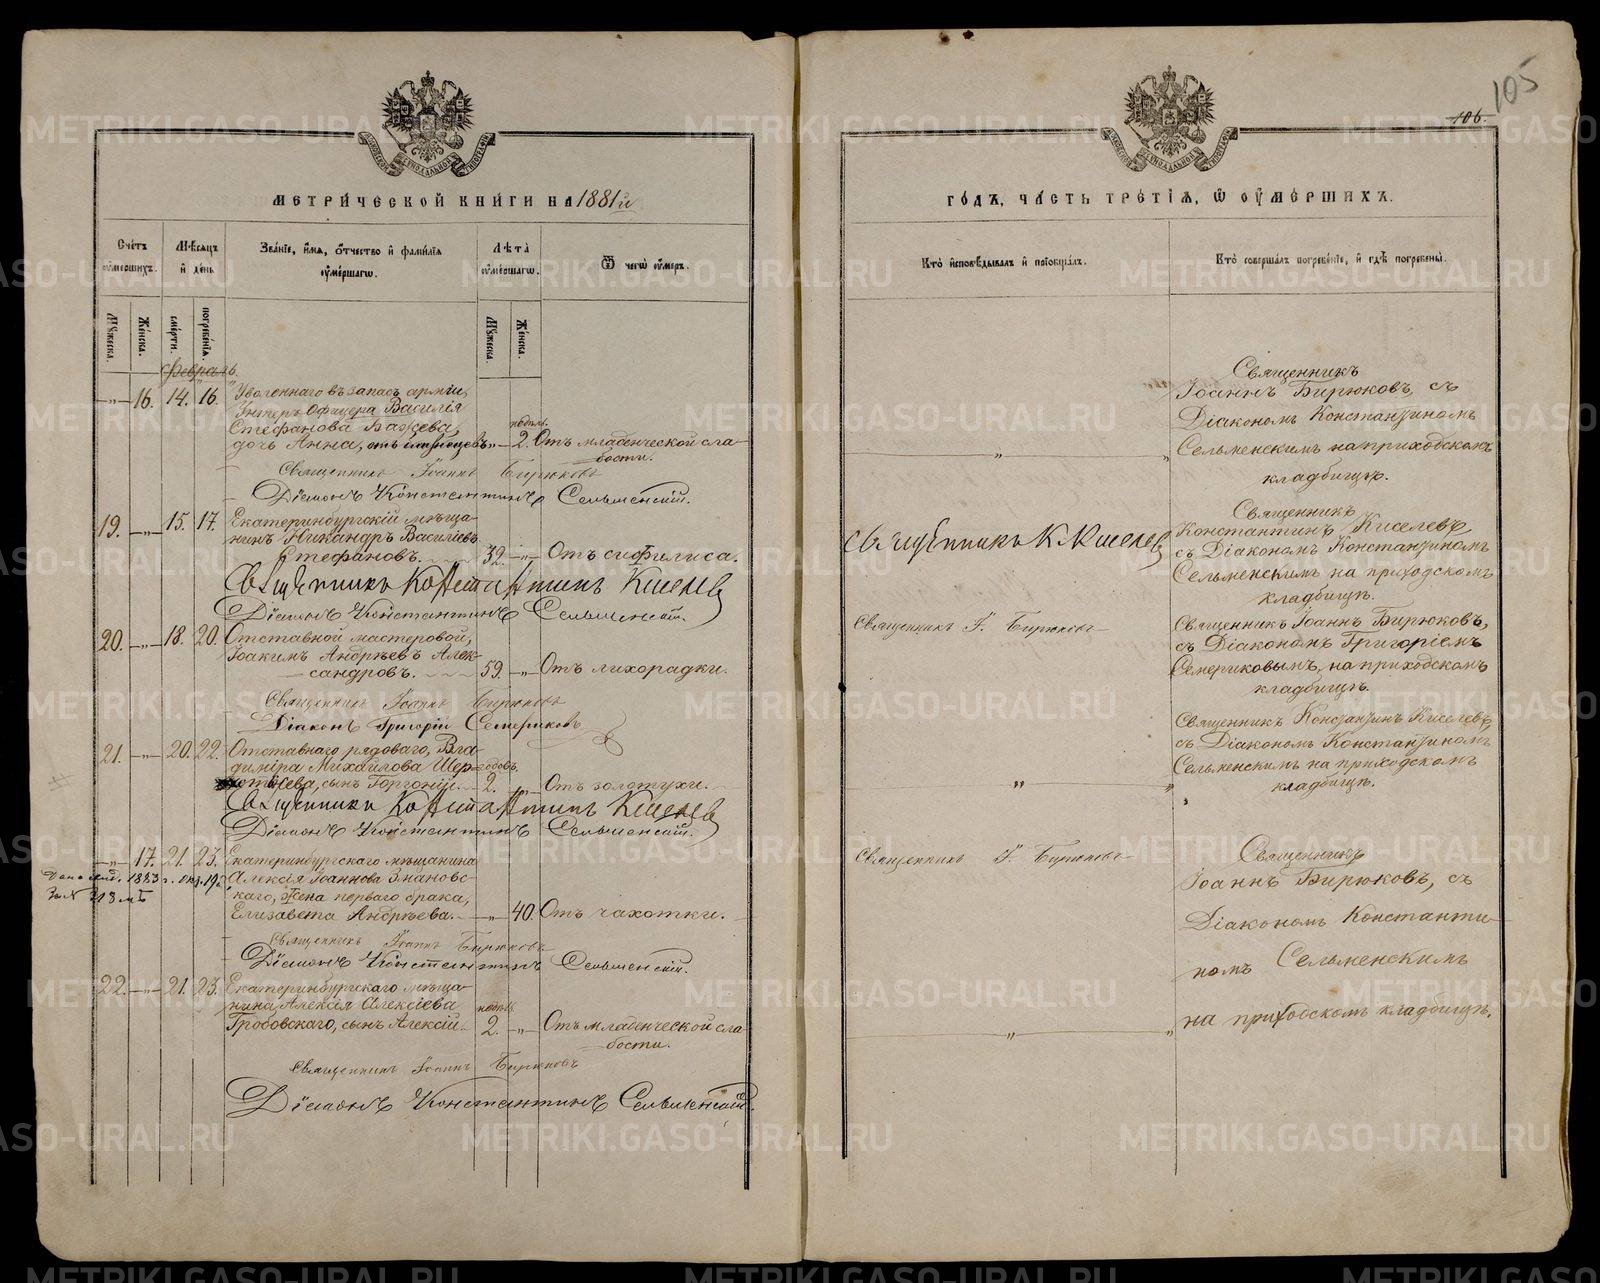 105
106.
МЕТРИЧЕСКОЙ КНИГИ НА 1881й
Счетъ умершихъ.
Мѣсяцъ и день
Званіе, имя, отчество и фамилія умершаго.
Лѣта умершаго.
Ѿ чегѡ умеръ.
Мужеска.
Женска.
смерти.
погребенія.
Мужеска.
Женска.
Февраль.
—„— 16. 14. 16. Уволеннаго въ запасъ арміи,
Унтеръ Офицера Василія
Стефанова Бажева недѣль
дочь Анна, —„— 2. Отъ младенческой сла-
бости.
Священникъ Іоаннъ Бирюковъ
Діаконъ Константинъ Сельменскій.
19. —„— 15. 17. Екатеринбургскій мѣща-
нинъ Никандръ Васильевъ
Стефановъ. 32. —„— Отъ сифилиса.
Священникъ Константинъ Киселевъ
Діаконъ Константинъ Сельменскій.
20. —„— 18. 20. Отставной мастеровой,
Іоакимъ Андрѣевъ Алек-
сандровъ. 59. —„— Отъ лихорадки.
Священникъ Іоаннъ Бирюковъ
Діаконъ Григорій Семериковъ
21. —„— 20. 22. Отставнаго рядоваго, Вла-
диміра Михайлова Шер- годовъ.
сынъ Горгоній. 2. „ Отъ золотухи.
Священникъ Константинъ Киселевъ
Діаконъ Константинъ Сельменскій.
—„— 17. 21. 23. Екатеринбургскаго мѣщанина
1883 г. окт. 19 Алексія Іоаннова Знановс-
За № 313 каго, жена перваго брака,
Елизавета Андрѣева. —„— 40. Отъ чахотки.
Священникъ Іоаннъ Бирюковъ
Діаконъ Константинъ Сельменскій.
22. —„— 21. 23. Екатеринбургскаго мѣща-
нина Алексія Алексіева недѣль
Гробовскаго, сынъ Алексій 2. „ Отъ младенческой сла-
бости.
Священникъ Іоаннъ Бирюковъ
Діаконъ Константинъ Сельменскій.
ГОДЪ, ЧАСТЬ ТРЕТІЯ, Ѿ УМЕРШИХЪ.
Кто исповѣдывалъ и пріобщалъ.
Кто совершалъ погребеніе, и гдѣ погребены.
Священникъ
Іоаннъ Бирюковъ, съ
Діакономъ Константиномъ
Сельменскимъ на приходскомъ
кладбищѣ.
Священникъ К. Киселевъ
Священникъ
Константинъ Киселевъ,
съ Діакономъ Константиномъ
Сельменскимъ на приходскомъ
кладбищѣ.
Священникъ І. Бирюковъ
Священникъ Іоаннъ Бирюковъ,
съ Діакономъ Григоріемъ
Семериковымъ, на приходскомъ
кладбищѣ.
„
Священникъ Константинъ Киселевъ,
съ Діакономъ Константиномъ
Сельменскимъ на приходскомъ
кладбищѣ.
Священникъ І. Бирюковъ
Священникъ
Іоаннъ Бирюковъ, съ
Діакономъ Константи-
номъ Сельменскимъ
на приходскомъ кладбищѣ.
METRIKI.GASO-URAL.RU